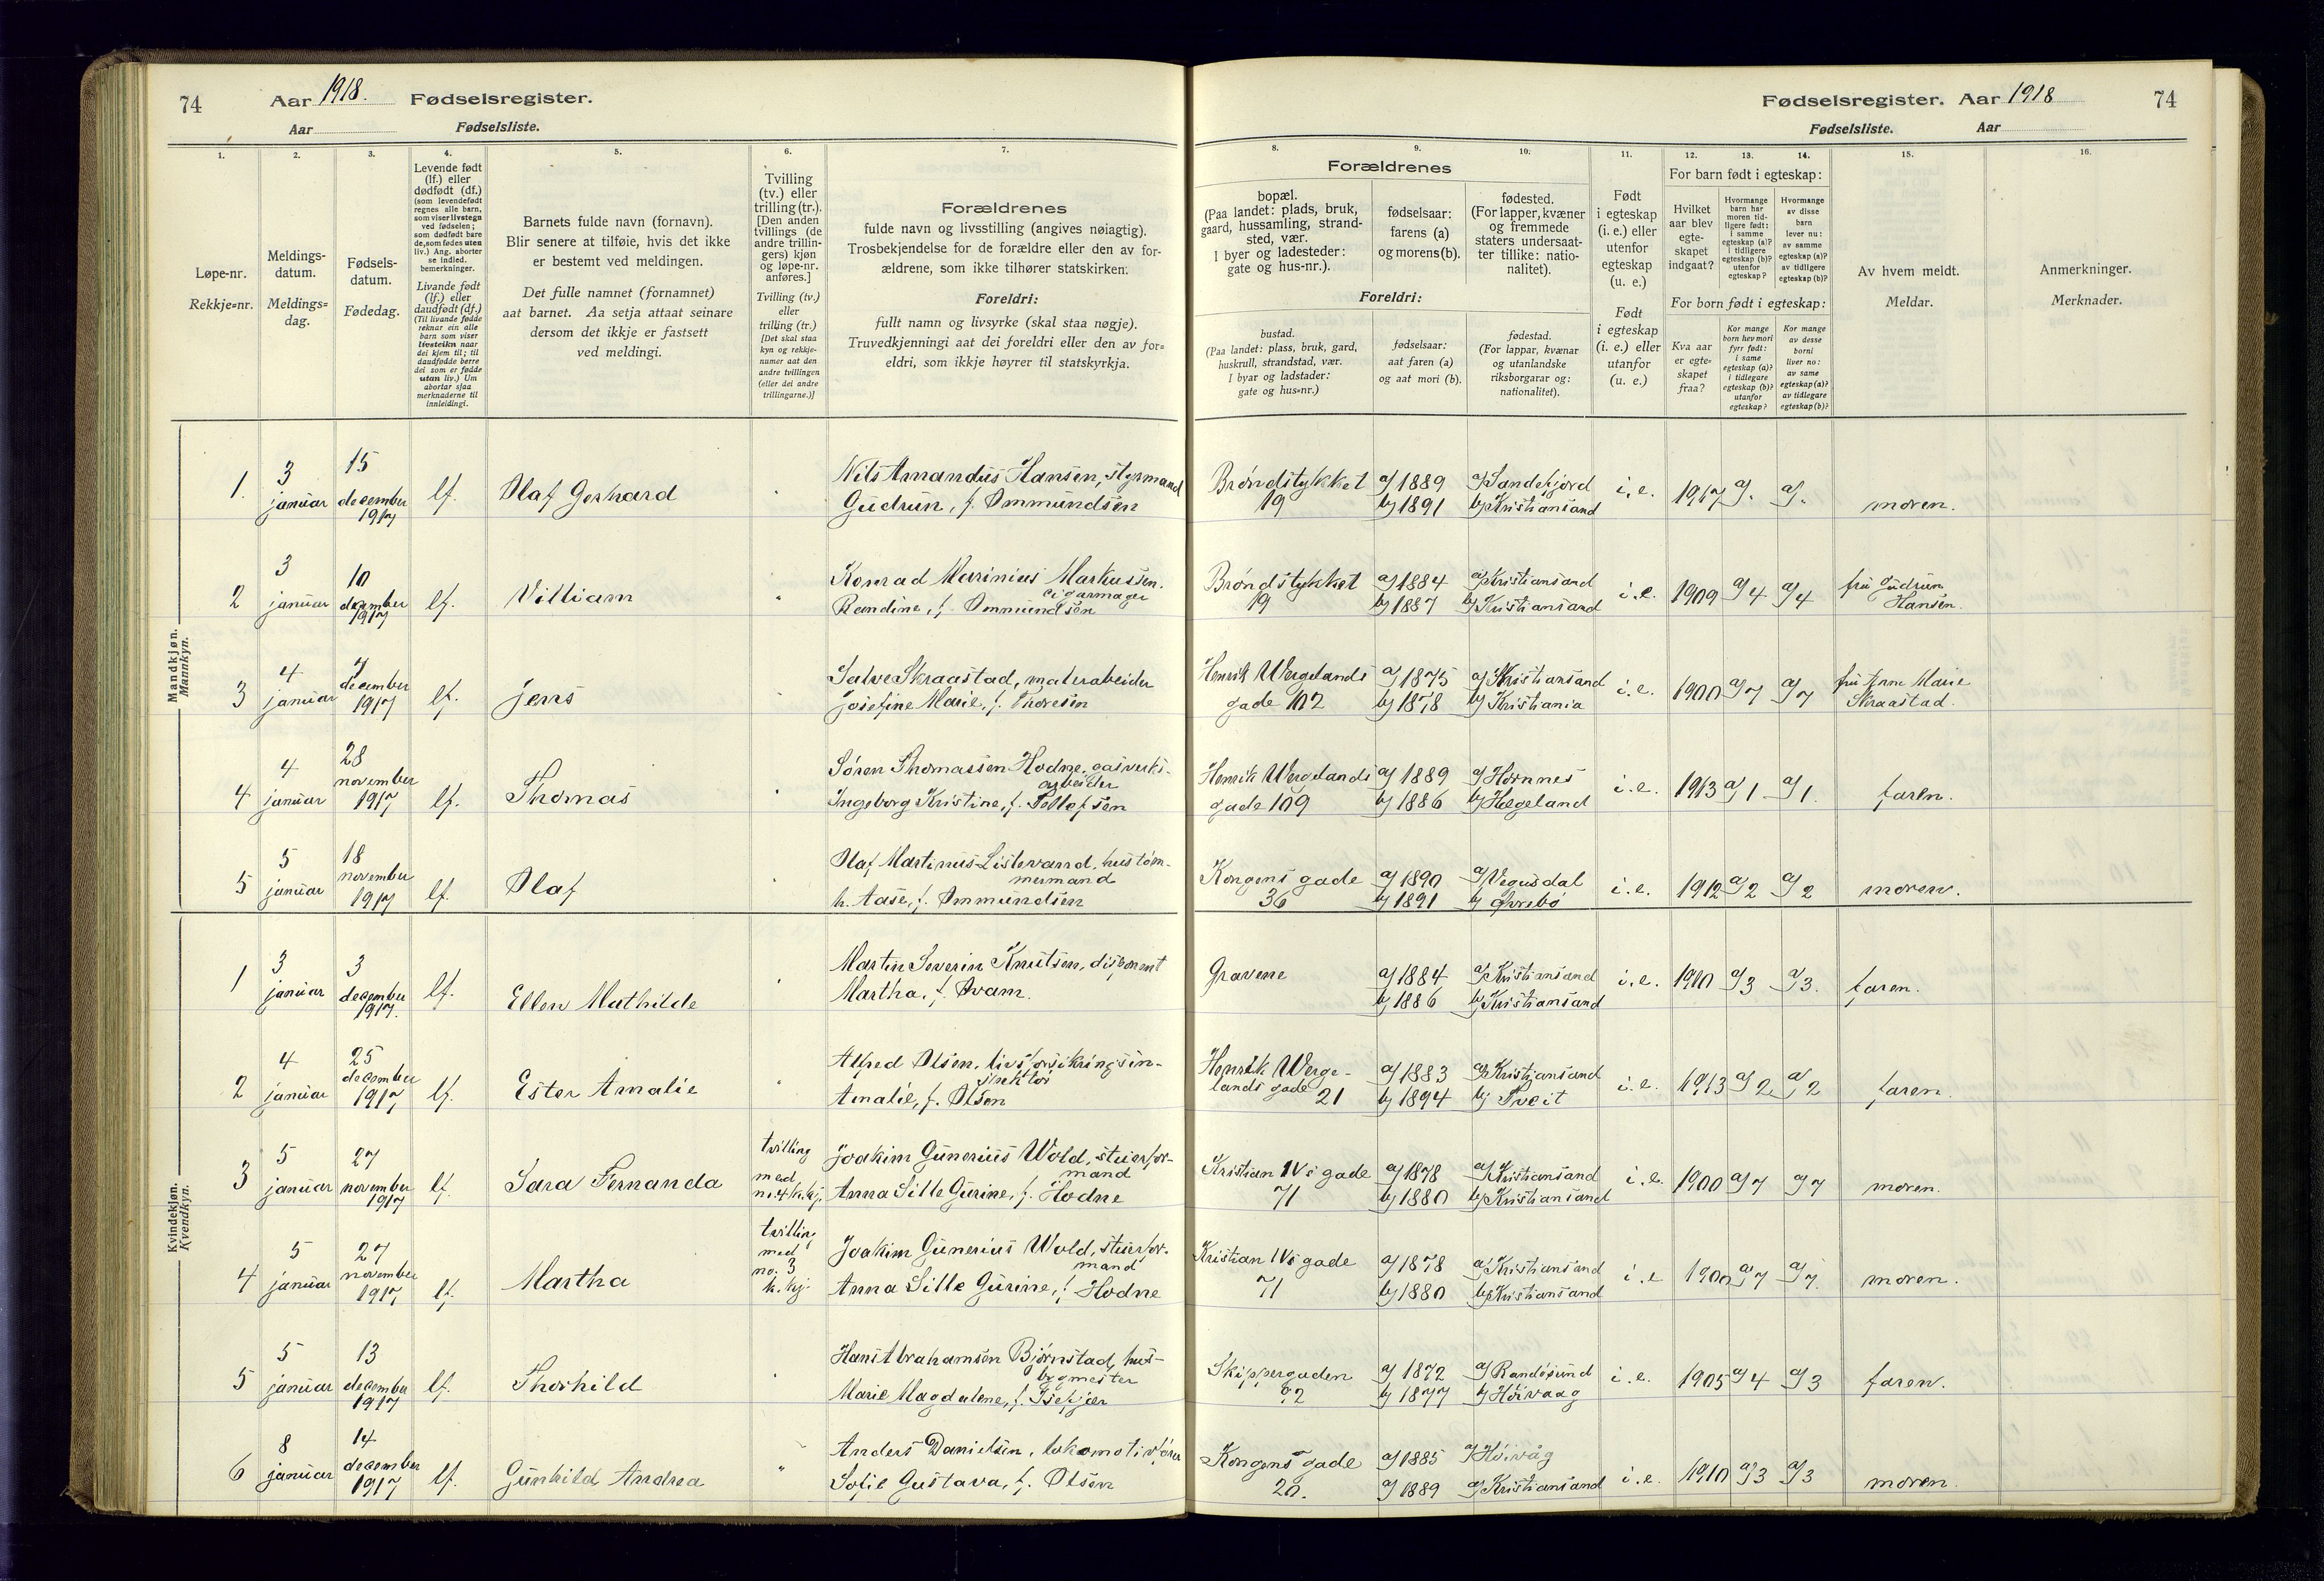 74 Aar 1918. Fødselsregister.
Aar Fødselsliste.
Fødselsregister. Aar 1918 74
Fødselsliste. Aar
1.
Løpe-nr.
Rekkje=nr.
2.
Meldings-
datum.
Meldings=
dag.
3.
Fødsels-
datum.
Fødedag.
4.
Levende født
(lf.) eller
dødfødt (df.)
(som levendefødt
regnes alle barn,
som viser livstegn
ved fødselen;
som dødfødt bare
de, som fødes uten
liv.) Ang. aborter
se indled.
bemerkninger.
Livande født
(lf.) eller
daudfødt (df.)
(Til livande fødde
reknar ein alle
barn som viser
livsteikn naar
dei kjem til; til
daudfødde berre
dei som er fødde
utan liv.) Um
abortar sjaa
merknaderne til
innleidingi.
5.
Barnets fulde navn (fornavn).
Blir senere at tilføie, hvis det ikke
er bestemt ved meldingen.
Det fulle namnet (fornamnet)
aat barnet. Aa setja attaat seinare
dersom det ikkje er fastsett
ved meldingi.
6.
Tvilling
(tv.) eller
trilling (tr.).
[Den anden
tvillings (de
andre trillin-
gers) kjøn
og løpe-nr.
anføres.]
Tvilling (tv.)
eller
trilling (tr.)
[Det skal staa
kyn og rekkje-
numer aat den
andre tvillingen
(eller dei andre
trillingarne.)]
7.
Forældrenes
fulde navn og livsstilling (angives nøiagtig).
Trosbekjendelse for de forældre eller den av for-
ældrene, som ikke tilhører statskirken.
Foreldri:
fullt namn og livsyrke (skal staa nøgje).
Truvedkjenningi aat dei foreldri eller den av for=
eldri, som ikkje høyrer til statskyrkja.
Forældrenes
8.
bopæl.
(Paa landet: plads, bruk,
gaard, hussamling, strand-
sted, vær.
I byer og ladesteder:
gate og hus-nr.).
Foreldri:
bustad.
(Paa landet: plass, bruk, gard,
huskrull, strandstad, vær.
I byar og ladstader:
gate og hus=nr.)
9.
fødselsaar:
farens (a)
og morens (b).
fødselsaar:
aat faren (a)
og aat mori (b).
10.
fødested.
(For lapper, kvæner
og fremmede
staters undersaat-
ter tillike: natio-
nalitet).
fødestad.
(For lappar, kvænar
og utanlandske
riksborgarar og:
nationalitet).
11.
Født
i egteskap
(i. e.) eller
utenfor
egteskap
(u. e.)
Født
i egteskap
(i. e.) eller
utanfor
(u. e.)
For barn født i egteskap:
12.
Hvilket
aar blev
egte-
skapet
indgaat?
13.
Hvormange
barn har
moren tid-
ligere født:
i samme
egteskap (a)?
i tidligere
egteskap (b)?
utenfor
egteskap?
14.
Hvormange
av disse
barn
lever nu:
av samme
egteskap (a)?
av tidligere
egteskap (b)?
For born født i egteskap:
Kva aar
er egte-
skapet
fraa?
Kor mange
born hev mori
fyrr født:
i same
egteskap (a)?
i tidlegare
egteskap (b)?
utanfor
egteskap?
Kor mange
av desse
borni
liver nu:
av same
egteskap (a)?
av tidlegare
egteskap (b)?
15.
Av hvem meldt.
Meldar.
16.
Anmerkninger.
Merknader.
Mandkjøn.
Mannkyn.
1. 3 januar 15 december 1917 lf. Olaf Gerhard
Nils Amandus Hansen, styrmand
Gudrun, f. Ommundsen
Brøndstykket 19 a) 1889 b) 1891 a) Sandefjord b) Kristiansand i.e. 1917 a). a). moren.
2 3 januar 10 december 1917 lf. William
Konrad Marinius Markussen.
cigarmager
Randine, f. Ommundsen
Brøndstykket 19 a) 1884 b) 1887 a) Kristiansand b) Kristiansand i.e. 1909 a) 4 a) 4 fru Gudrun Hansen.
3 4 januar 7 december 1917 lf. Jens
Salve Skraastad, malerabeider
Josefine Marie, f. Thoresen
Henrik Wergelands gade 102 a) 1875 b) 1878 a) Kristiansand b) Kristiania i.e. 1900 a) 7 a) 7 fru Anne Marie Skraastad.
4 4 januar 28 november 1917 lf. Thomas
Søren Thomassen Hodne, gasverks-
arbeider
Ingeborg Kristine, f. Tellefsen
Henrik Wergelands gade 109 a) 1889 b) 1886 a) Hornnes b) Hægeland i.e. 1913 a) 1 a) 1. faren.
5 5 januar 18 november 1917 lf. Olaf
Olaf Martinus Listerand, hustøm-
mermand
h. Aase, f. Ommundsen
Kongens gade 36 a) 1890 b) 1891 a) Vegusdal b) Øvrebø i.e. 1912 a) 2 a) 2 moren.
Kvindekjøn.
Kvendkyn.
1 3 januar 3 december 1917. lf. Ellen Mathilde
Martin Severin Knutsen, disponent
Martha, f. Svam.
Gravene a) 1884 b) 1886 a) Kristiansand b) Kristiansand i.e. 1910 a) 3 a) 3. faren.
2 4 januar 25 december 1917 lf. Ester Amalie
Alfred Olsen, livsforsikringsin-
spektør
Amalie, f. Olsen
Henrik Werge-
lands gade 21 a) 1883 b) 1894 a) Kristiansand b) Tveit i.e. 1913 a) 2 a) 2 faren.
3 5 januar 27 november 1917 lf. Sara Fernanda tvilling med nr. 4 k.kj.
Joakim Gunerius Wold, stuerfor-
mand
Anna Sille Gurine, f. Hodne
Kristian IVs gade 71 a) 1878 b) 1880 a) Kristiansand b) Kristiansand i.e. 1900 a) 7 a) 7 moren.
4 5 januar 27 november 1917 lf. Martha tvilling med no. 3 k.kj.
Joakim Gunerius Wold, stuerfor-
mand
Anna Sille Gurine, f. Hodne
Kristian IVs gade 71 a) 1878 b) 1880 a) Kristiansand b) Kristiansand i.e 1900 a) 7 a) 7. moren.
5 5 januar 13 december 1917 lf. Thorhild
Hans Abrahamsen Bjørnstad, hus-
bygmester
Marie Magdalene, f. Isefjær
Skippergaden 92 a) 1872 b) 1877 a) Randøsund b) Høivaag i.e. 1905 a) 4 a) 3 faren.
6 8 januar 14 december 1917 lf. Gunhild Andrea
Anders Danielsen, lokomotivfører
Sofie Gustava, f. Olsen
Kongens gade 20. a) 1885 a) 1889 a) Høivåg a) Kristiansand i.e. 1910 a) 3 a) 3 moren.